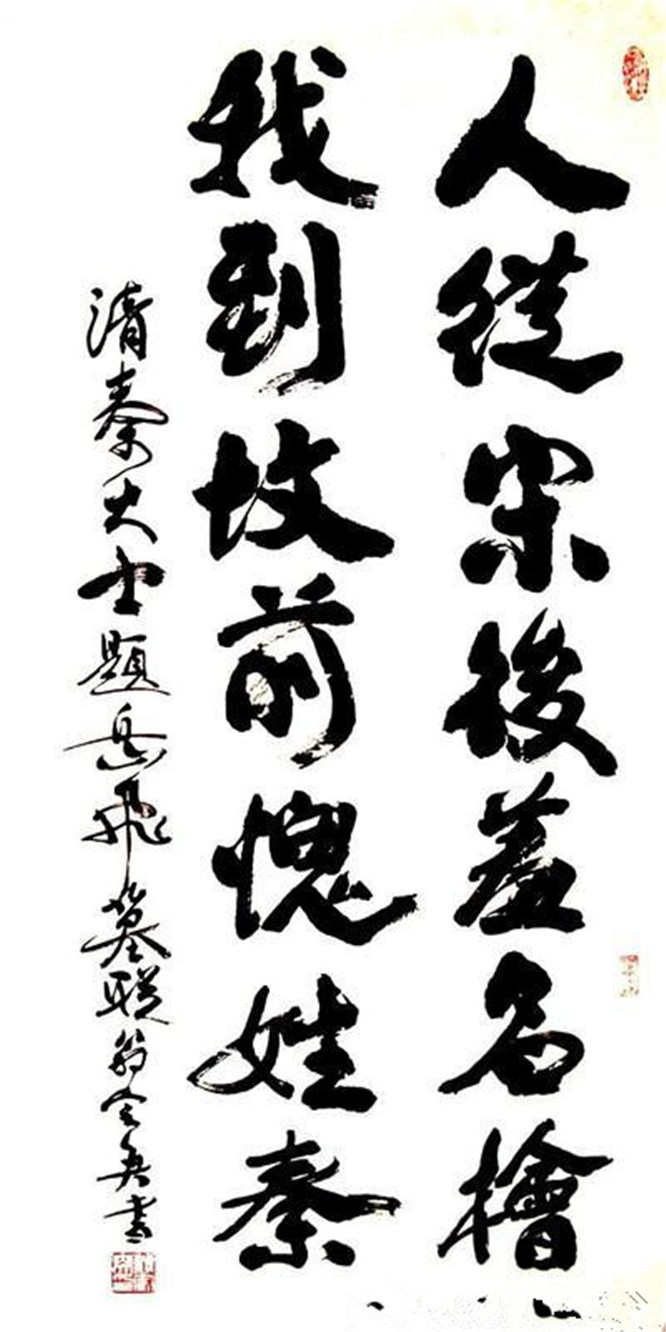 人從宋後羞名檜
我到坟前愧姓秦
清秦大士題岳飛墓聯翁令吾書